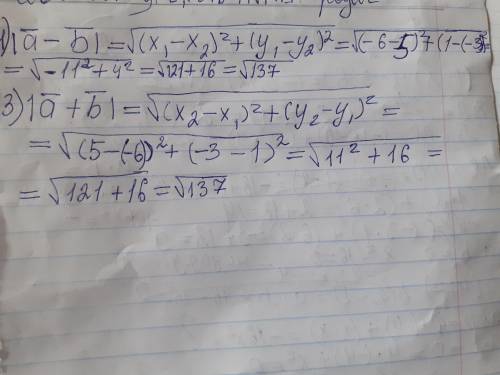 1) |a̅ - b̅| = √(x₁-x₂)²+(y₁-y₂)² = √(-6-5)²+(1-(-3))²
= √-11²+4² = √121+16 = √137
3) |a̅+b̅| = √(x₂-x₁)²+(y₂-y₁)² =
= √(5-(-6))²+(-3-1)² = √11²+16 =
= √121+16 = √137